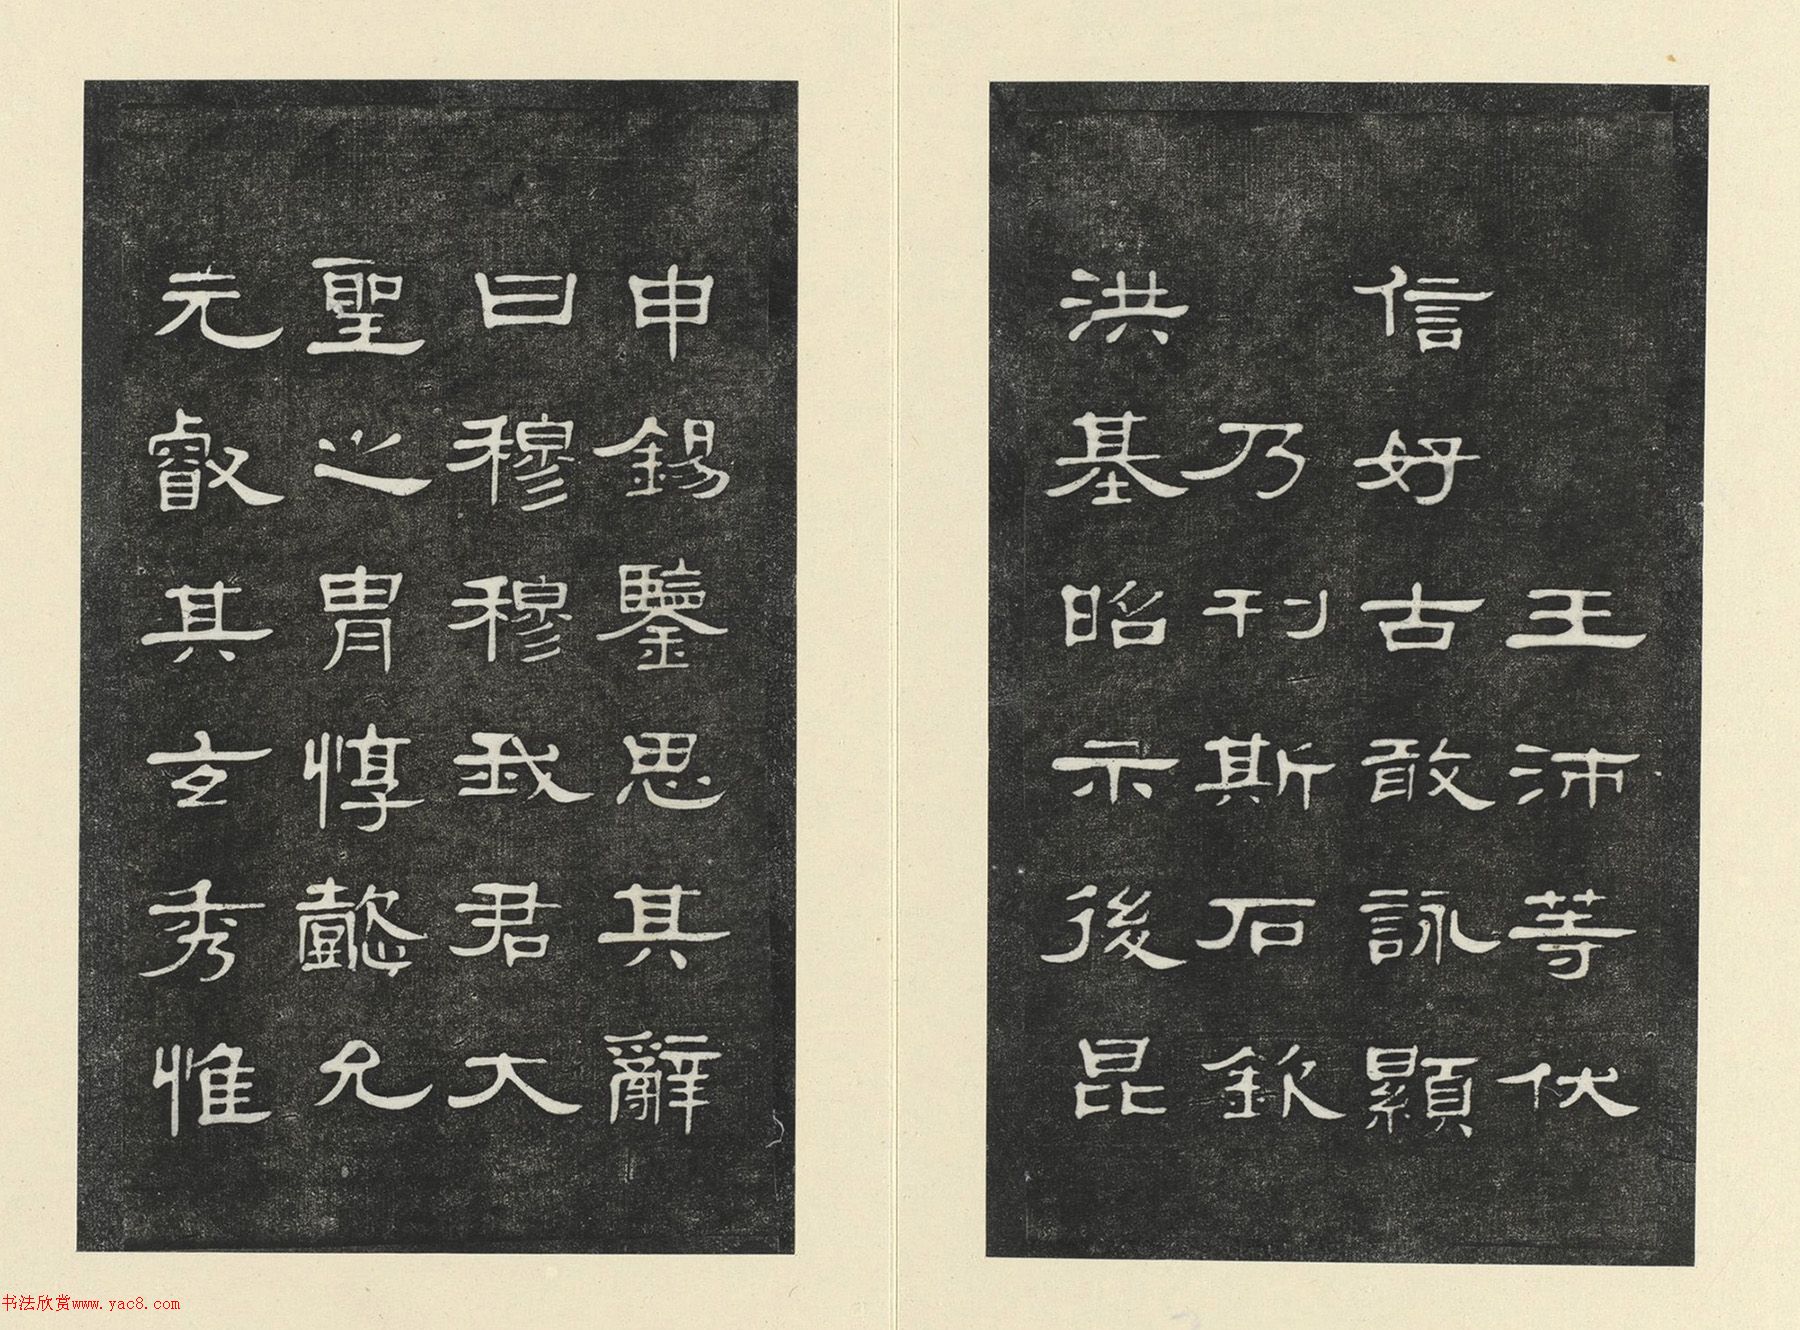 王沛等伏
信好古敢詠顯
乃刊斯石欽
洪基昭示後昆
申錫鑒思其辭
曰穆穆我君大
聖之胄惇懿允
元叡其玄秀惟
书法欣赏www.yac8.com